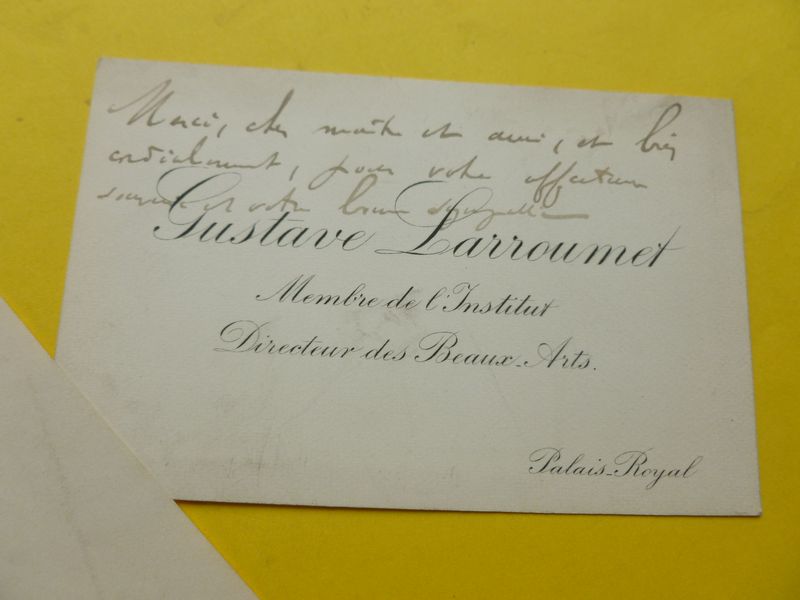 Merci, cher maître et ami, et bien
cordialement, pour votre affectueux
et votre bonne
Gustave Larroumet
Membre de l'Institut
Directeur des Beaux-Arts.
Palais-Royal